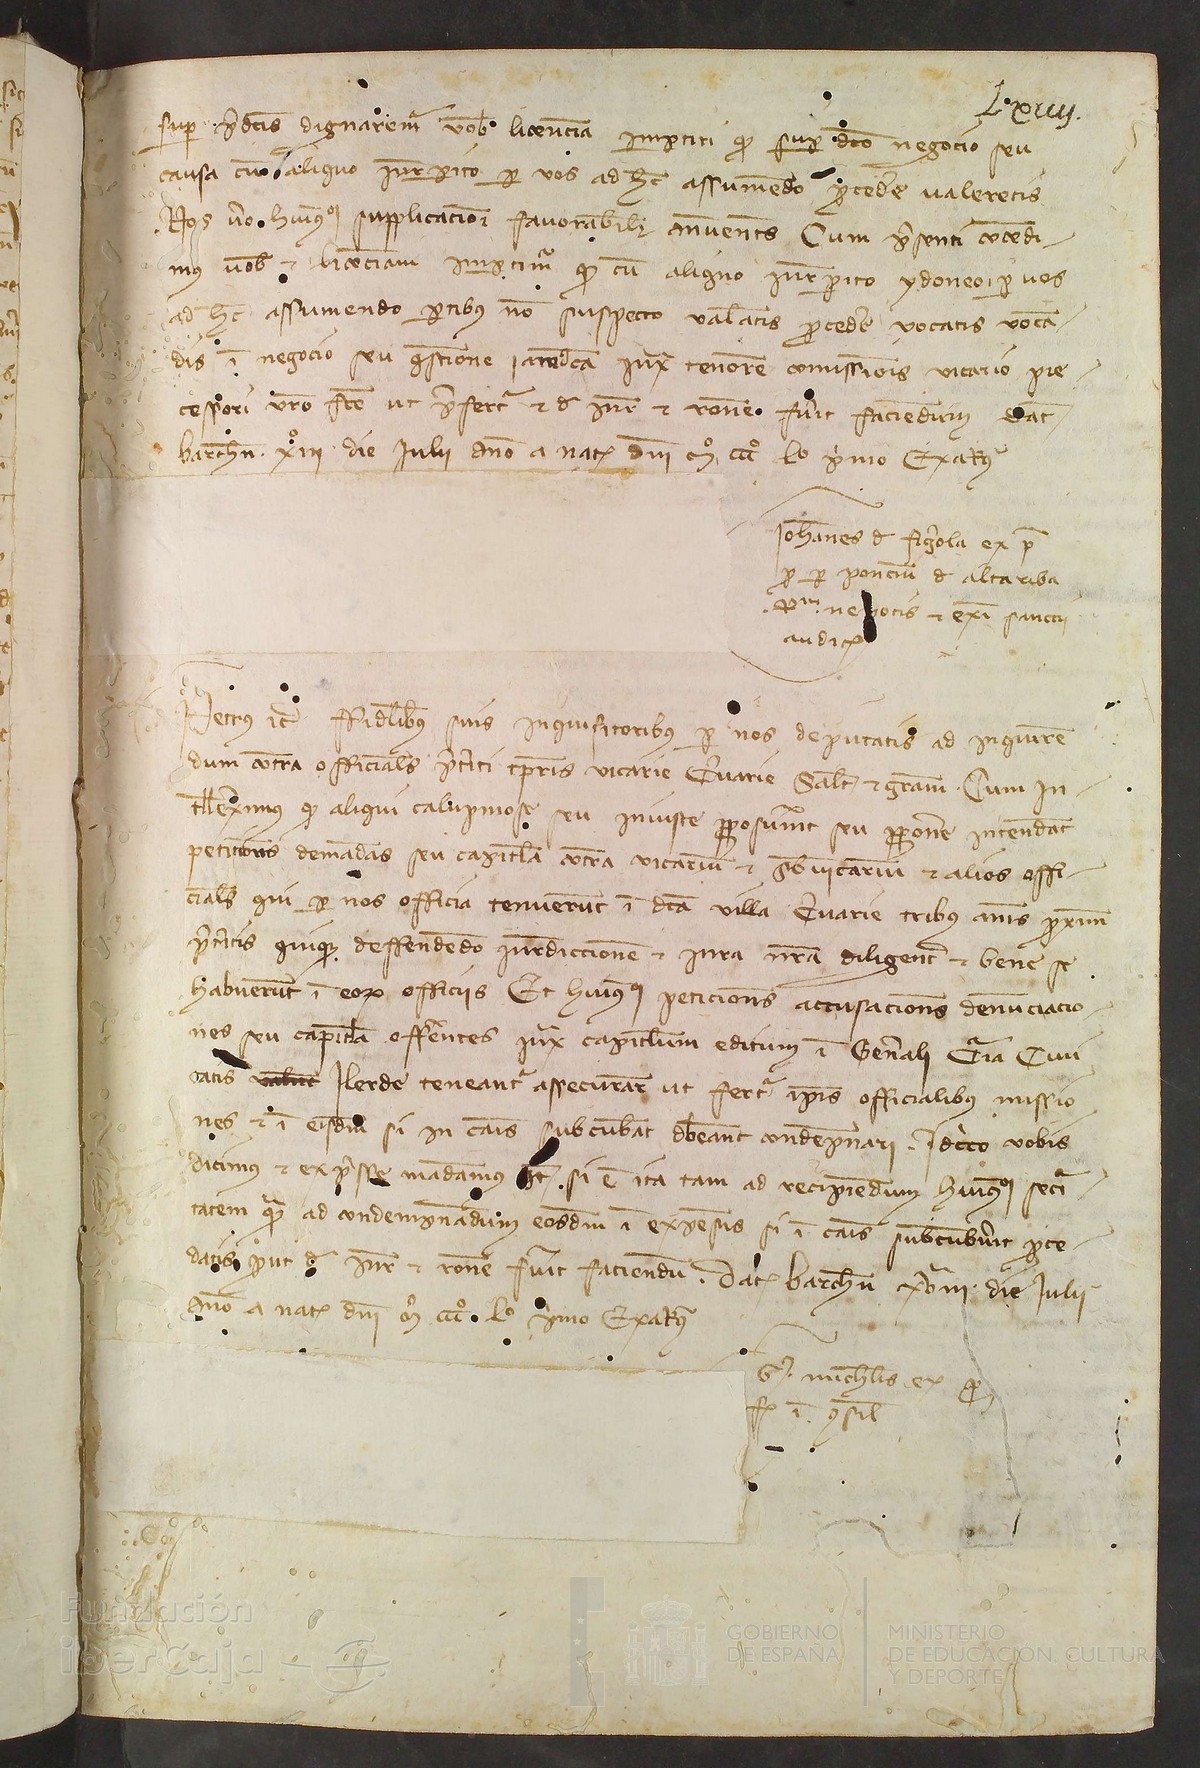 L·xiiij.
sup p̱dcis dignarem̃ vob̃ licencia imp̱titi q̃ sup dco negocio seu
causa cum aliquo iurp̱ito p̱ vos ad hc̃ assumendo p̱ceder̃ valeretis
Nos vo huiq̃i supplicacioni favorabilit̃ annuentes Cum p̃senti concedi-
mus vob̃ ⁊ licẽciam imp̱tim̃ q̃ cũ aliquo iurp̱ito ydoneo p̱ vos
ad hc̃ assumendo p̱tibus nõ suspecto valeatis p̱ceder̃ vocatis vocan-
dis ĩ negocio seu q̃stione iamdca iux̃ tenorẽ comissionis vicario pre
cessori vr̃o fcẽ ut p̃fertr̃ ⁊ d̃ iur̃ ⁊ rone fu̾it faciendum Dat̃
barchñ xiij die Julij Ano a nat̃ dnĩ m̊ ccc̊ lº p̃mo Exat̾
Johannes d̃ figẽrola ex p̱
p̱ p̱ poncium d̃ altariba
negociis ⁊ exĩ sanccij
audit̃
Petrus ⁊c̃ ffidelibus suis inquisitoribus p̱ nos deputatis ad inquiren
dum contra officiales p̃titi tp̱ris vicarie Cervarie Salt̃ ⁊ gram̃ Cum in-
tellexim̃us q̃ aliqui calupniose seu iniuste p̱posuerunt seu p̱poner̃ intendant
peticiones demãdas seu capitla contra vicariũ ⁊ subvicariũ ⁊ alios offi-
ciales qui p̱ nos officia tenuerunt ĩ dca villa Cervarie tribus annis p̱xim̃
p̃titis quiq̃ deffendendo iurediccionẽ ⁊ iura nra diligent̃ ⁊ bene se
habuerunt ĩ eorꝫ officiis Et huiq̃i peticiones accusaciones denunciacio-
nes seu capitla offerentes iux̃ capitlum editum ĩ Generali Cu̾ria Civi
tatis Jlerde teneantr̃ assecurar̃ ut fertr̃ ip̃is officialibus missio
nes ⁊ ĩ eisdem si in cais subcubãt debeant condempnari Jdcco vobis
dicimus ⁊ exp̃sse mãdamus q̃t̃ si ẽ ita tam ad recipiendum huiq̃i secu̾ri-
tatem q̃ ad condempnãdum eosdem ĩ expensis si ĩ cais subcubu̾int p̱ce-
datis p̱ut d̃ iur̃ ⁊ rone fu̾it faciendũ. Dat̃ barchñ xviij die Julij
Ano a nat̃ dnĩ m̊ ccc̊ lº p̃mo Exat̾
ex p̱
ĩ q̃sil̃
Fundación
iberCaja
GOBIERNO
DE ESPAÑA
MINISTERIO
DE EDUCACIÓN, CULTURA
Y DEPORTE